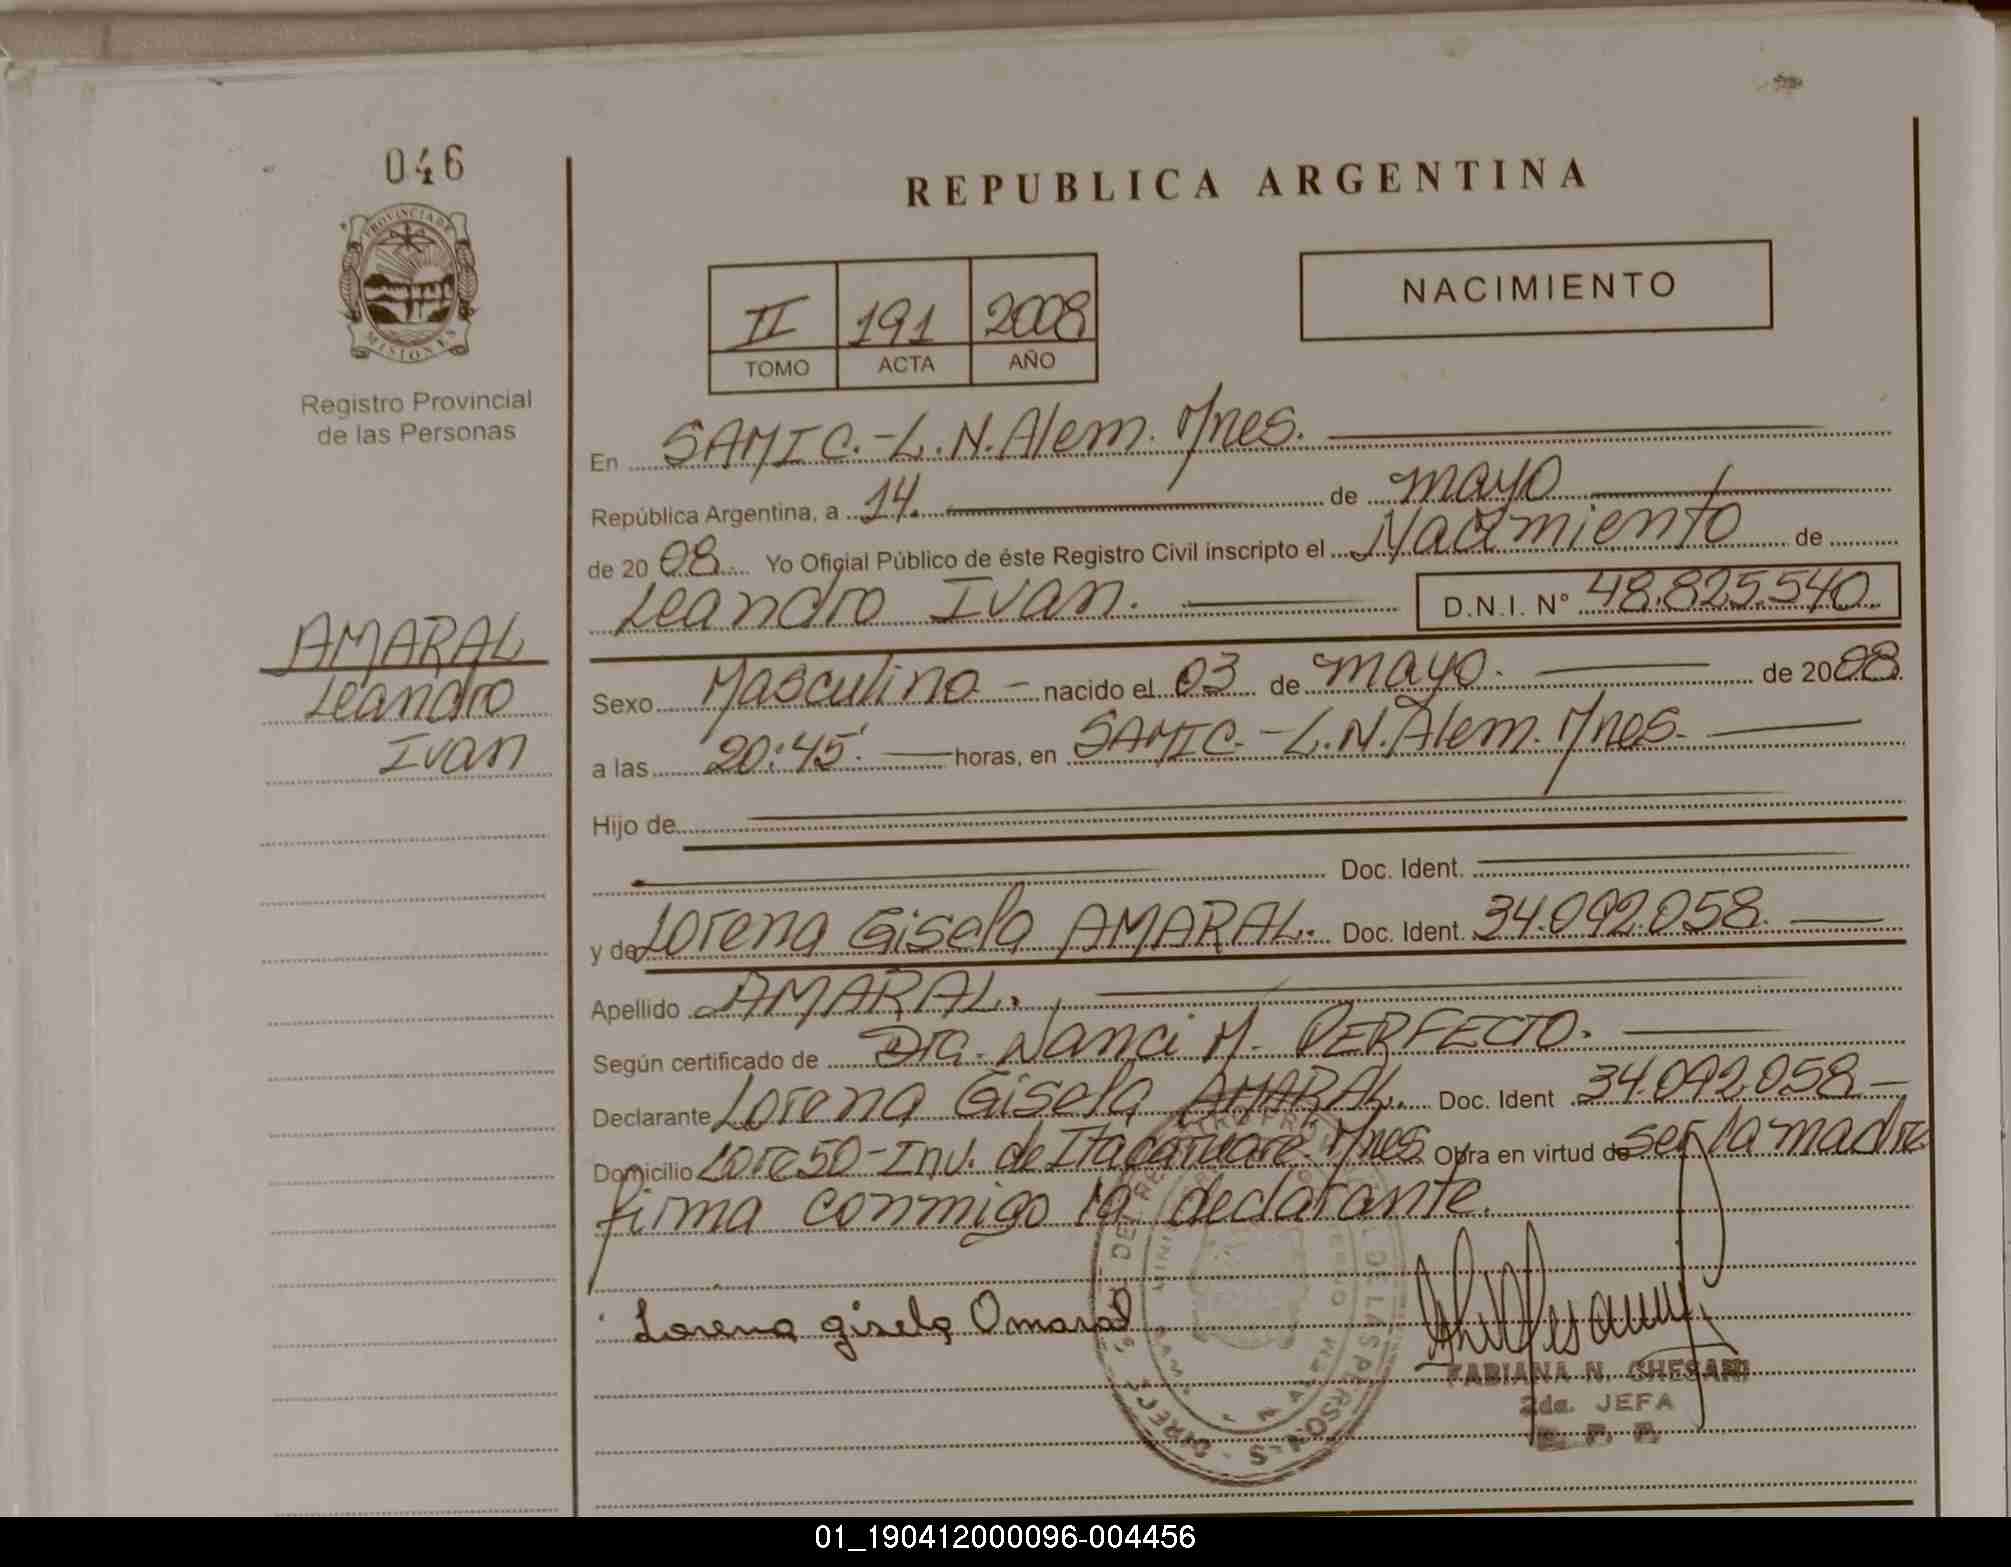 046
PROVINCIA DE
MISIONES
Registro Provincial
de las Personas
AMARAL
Leandro
Ivan
REPUBLICA ARGENTINA
II 191 2008
TOMO ACTA AÑO
NACIMIENTO
En SAMIC.-L.N.Alem. Mnes.
República Argentina, a 14. de mayo
de 2008. Yo Oficial Público de éste Registro Civil inscripto el Nacimiento de
Leandro Ivan. D.N.I. Nº 48.825.540
Sexo Masculino - nacido el 03 de mayo. de 2008.
a las 20:45. horas, en SAMIC.-L.N.Alem. Mnes.
Hijo de
Doc. Ident.
y de Lorena Gisela AMARAL. Doc. Ident. 34.092.058.
Apellido AMARAL.
Según certificado de Dra. Nanci M. PERFECTO.
Declarante Lorena Gisela AMARAL. Doc. Ident 34.092.058-
Domicilio Lote 50-Inv. de Itacaruare. Mnes. Obra en virtud de ser la madre
firma conmigo la declarante.
Lorena gisela Omaral
FABIANA N. CHESANI
2da. JEFA
01_190412000096-004456